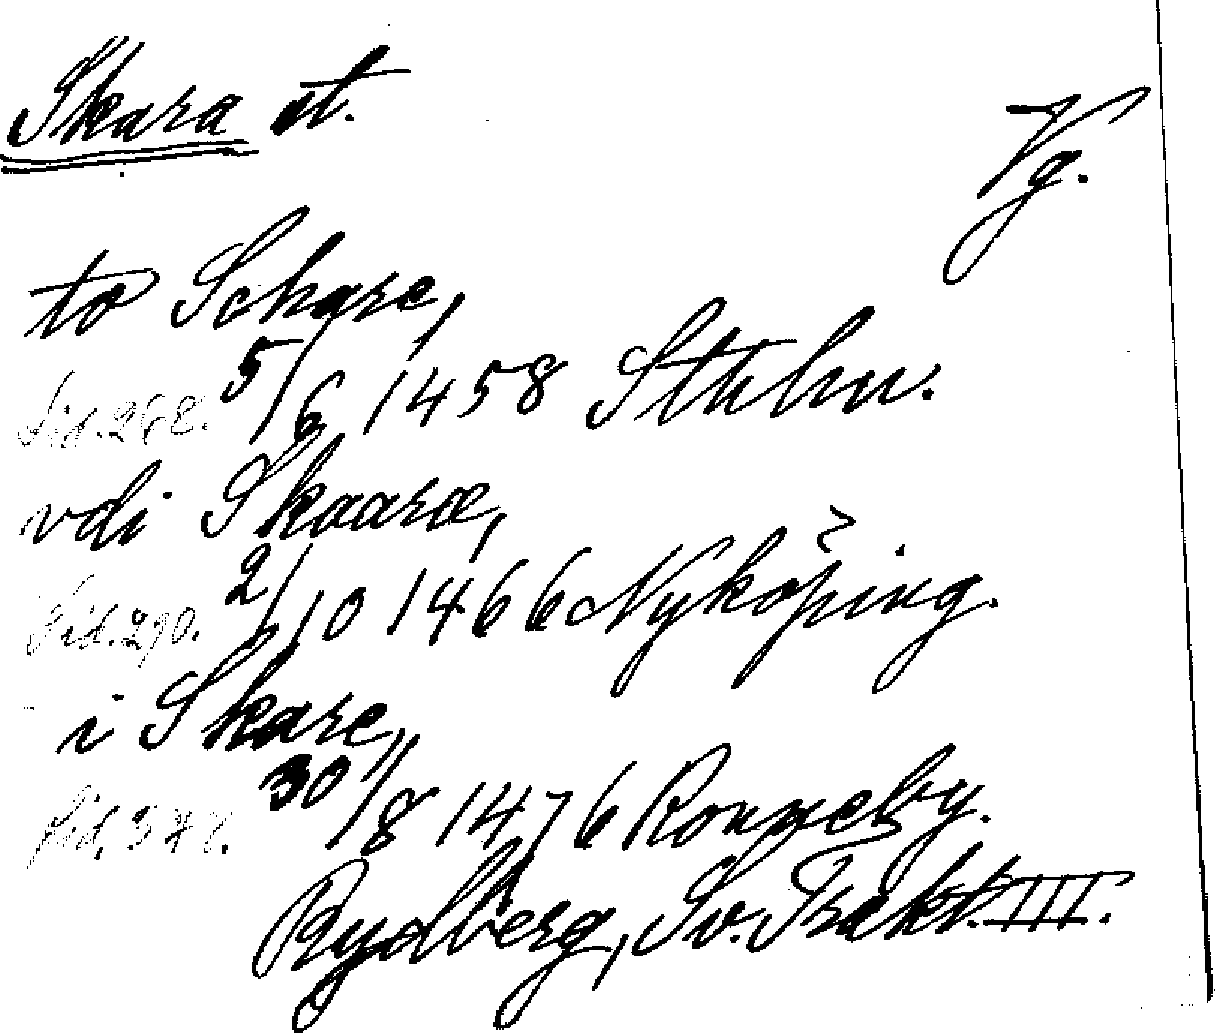 Skara st.
Vg.
to Schare,
Sid. 268. 5/6 1458 Sthlm.
vdi Skaaræ,
Sid. 290. 2/10 1466 Nyköping.
i Skare,
Sid. 378. 30/8 1476 Ronneby.
Rydberg, Sv. Trakt. III.